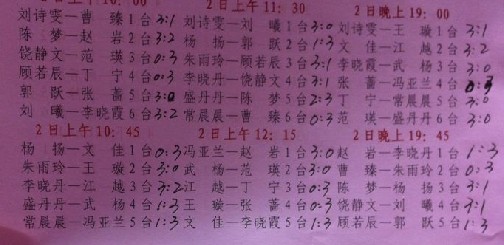 2日上午10:00
刘诗雯—曹臻1台3:1
陈梦—赵岩2台3:2
饶静文—范瑛3台0:3
顾若辰—丁宁4台0:3
郭跃—张蔷5台3:0
刘曦—李晓霞6台3:2
2日上午10:45
杨扬—文佳1台0:3
朱雨玲—王璇2台3:0
李晓丹—江越3台3:2
盛丹丹—武杨4台1:3
常晨晨—冯亚兰5台1:3
2日上午11:30
刘诗雯—刘曦1台3:0
杨扬—郭跃2台1:3
朱雨玲—顾若辰3台3:1
李晓丹—饶静文4台3:1
盛丹丹—陈梦5台2:3
常晨晨—曹臻6台0:3
2日上午12:15
冯亚兰—赵岩1台3:0
武杨—范瑛2台3:0
江越—丁宁3台0:3
王璇—张蔷4台0:3
文佳—李晓霞5台1:3
2日晚上19:00
刘诗雯—王璇1台3:1
文佳—江越2台3:2
李晓霞—武杨3台3:0
张蔷—冯亚兰4台0:3
丁宁—常晨晨5台3:0
范瑛—盛丹丹6台3:0
2日晚上19:45
赵岩—李晓丹1台1:3
曹臻—朱雨玲2台0:3
陈梦—杨扬3台3:1
饶静文—刘曦4台3:1
顾若辰—郭跃5台1:3